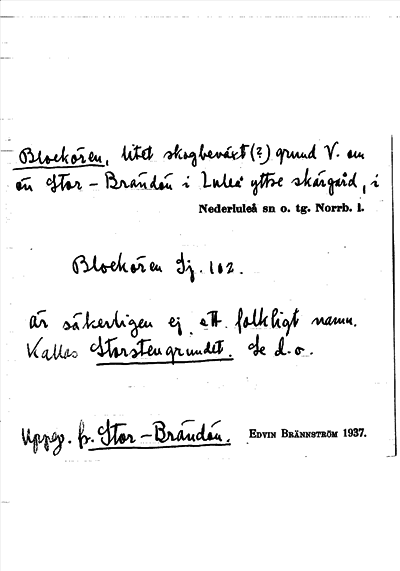 Blockören, litet skogbeväxt (?) grund V. om
ön Stor-Brändön i Luleå yttre skärgård, i
Nederluleå sn o. tg. Norrb. l.
Blockören Sj. 102.
är säkerligen ej ett folkligt namn.
Kallas Storstengrundet. Se d. o.
Uppg. fr. Stor-Brändön. EDVIN BRÄNNSTRÖM 1937.